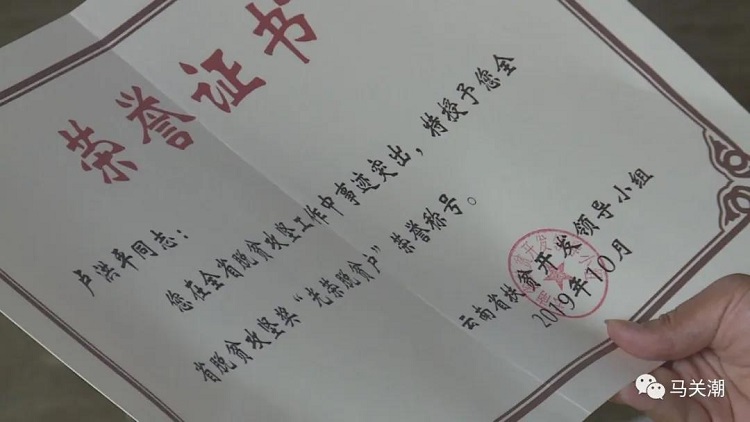 荣誉证书
卢洪平同志：
您在全省脱贫攻坚工作中事迹突出，特授予您全
省脱贫攻坚奖“光荣脱贫户”荣誉称号。
云南省扶贫开发领导小组
2019年10月
马关潮